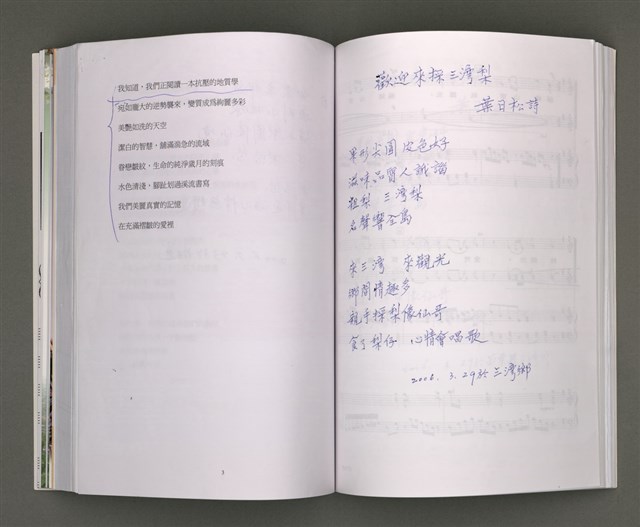 我知道，我們正閱讀一本抗壓的地質學
宛如龐大的逆勢襲來，變質成為絢麗多彩
美艷如洗的天空
潔白的智慧，舖滿湍急的流域
眷戀皺紋，生命的純淨歲月的刻痕
水色清淺，腳趾划過溪流書寫
我們美麗真實的記憶
在充滿褶皺的愛裡
3
歡迎來採三灣梨
葉日松詩
果形尖圓 皮色好
滋味品質人誠謳
粗梨 三灣梨
名聲響全島
來三灣 來觀光
鄉間情趣多
親手採梨像仙哥
食了梨仔 心情會唱歌
2006. 3. 29於三灣鄉